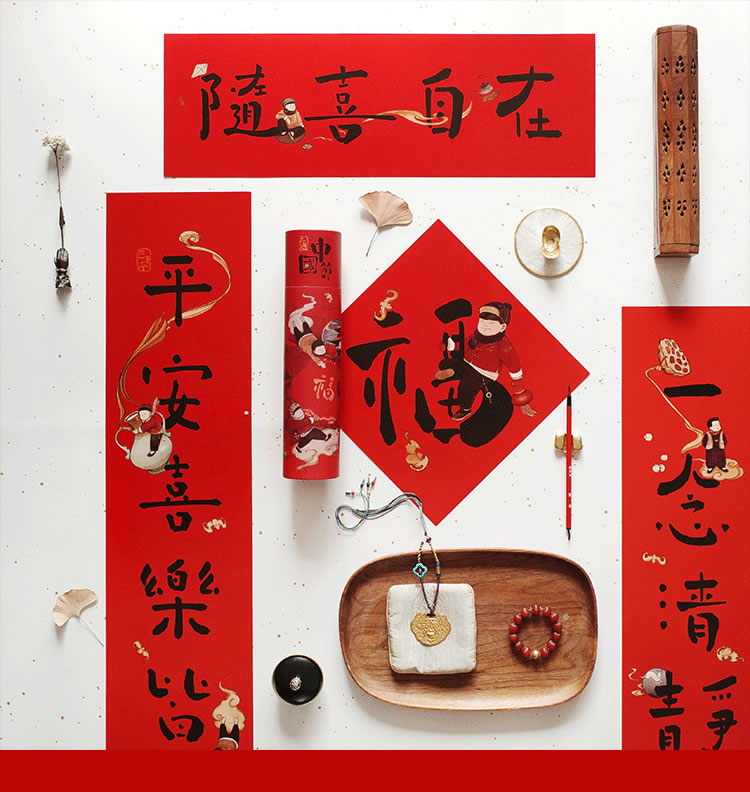 隨喜自在
平安喜樂皆
中國節
福
福
一念清靜